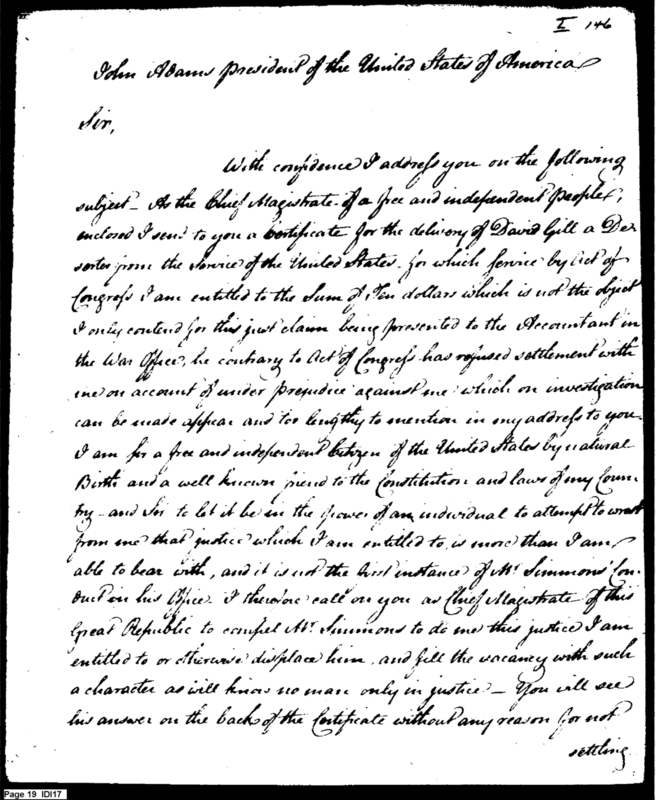 I 146
John Adams President of the United States of America
Sir,
With confidence I address you on the following
subject – As the Chief Magistrate of a free and independent People,
enclosed I send to you a Certificate for the delivery of David Gill a De
serter from the Service of the United States. for which Service by Act of
Congress I am entitled to the Sum of Ten dollars which is not the object
I only contend for this just claim being presented to the Accountant in
the War Office, he contrary to Act of Congress has refused settlement with
me on account of under prejudice against me which on investigation
can be made appear and too lengthy to mention in my address to you
I am Sir a free and independent Citizen of the United States by natural
Birth and a well known friend to the Constitution and laws of my Coun
try – and Sir to let it be in the power of an individual to attempt to wrest
from me that justice which I am entitled to, is more than I am
able to bear with, and it is not the first instance of Mr. Simmons' Con
duct in his Office. I therefore call on you as Chief Magistrate of this
Great Republic to compel Mr. Simmons to do me this justice I am
entitled to or otherwise displace him, and fill the vacancy with such
a character as will know no man only in justice – You will see
his answer on the back of the Certificate without any reason for not
settling
Page 19 IDI17